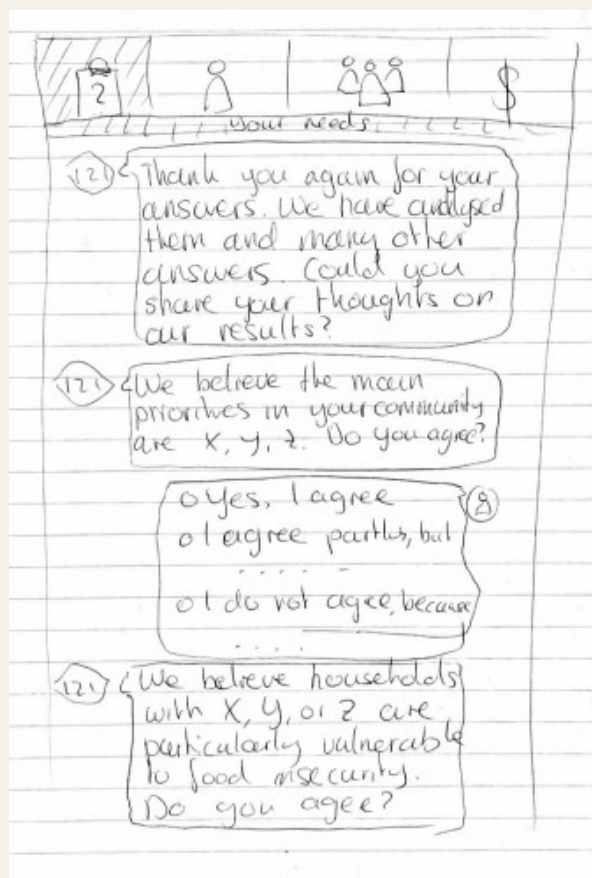 2
$
your needs
121
Thank you again for your
answers. We have analysed
them and many other
answers. Could you
share your thoughts on
our results?
121
We believe the main
priorities in your community
are X, Y, Z. Do you agree?
o Yes, I agree
o I agree partly, but
. . . . .
o I do not agree, because
. . . .
121
We believe households
with X, Y, or Z are
particularly vulnerable
to food insecurity.
Do you agee?